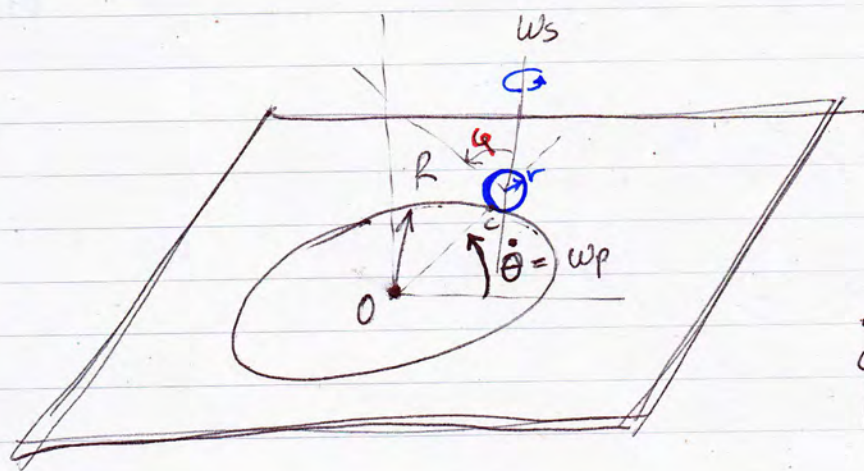 ωs
φ
R
r
c
θ̇ = ωp
O